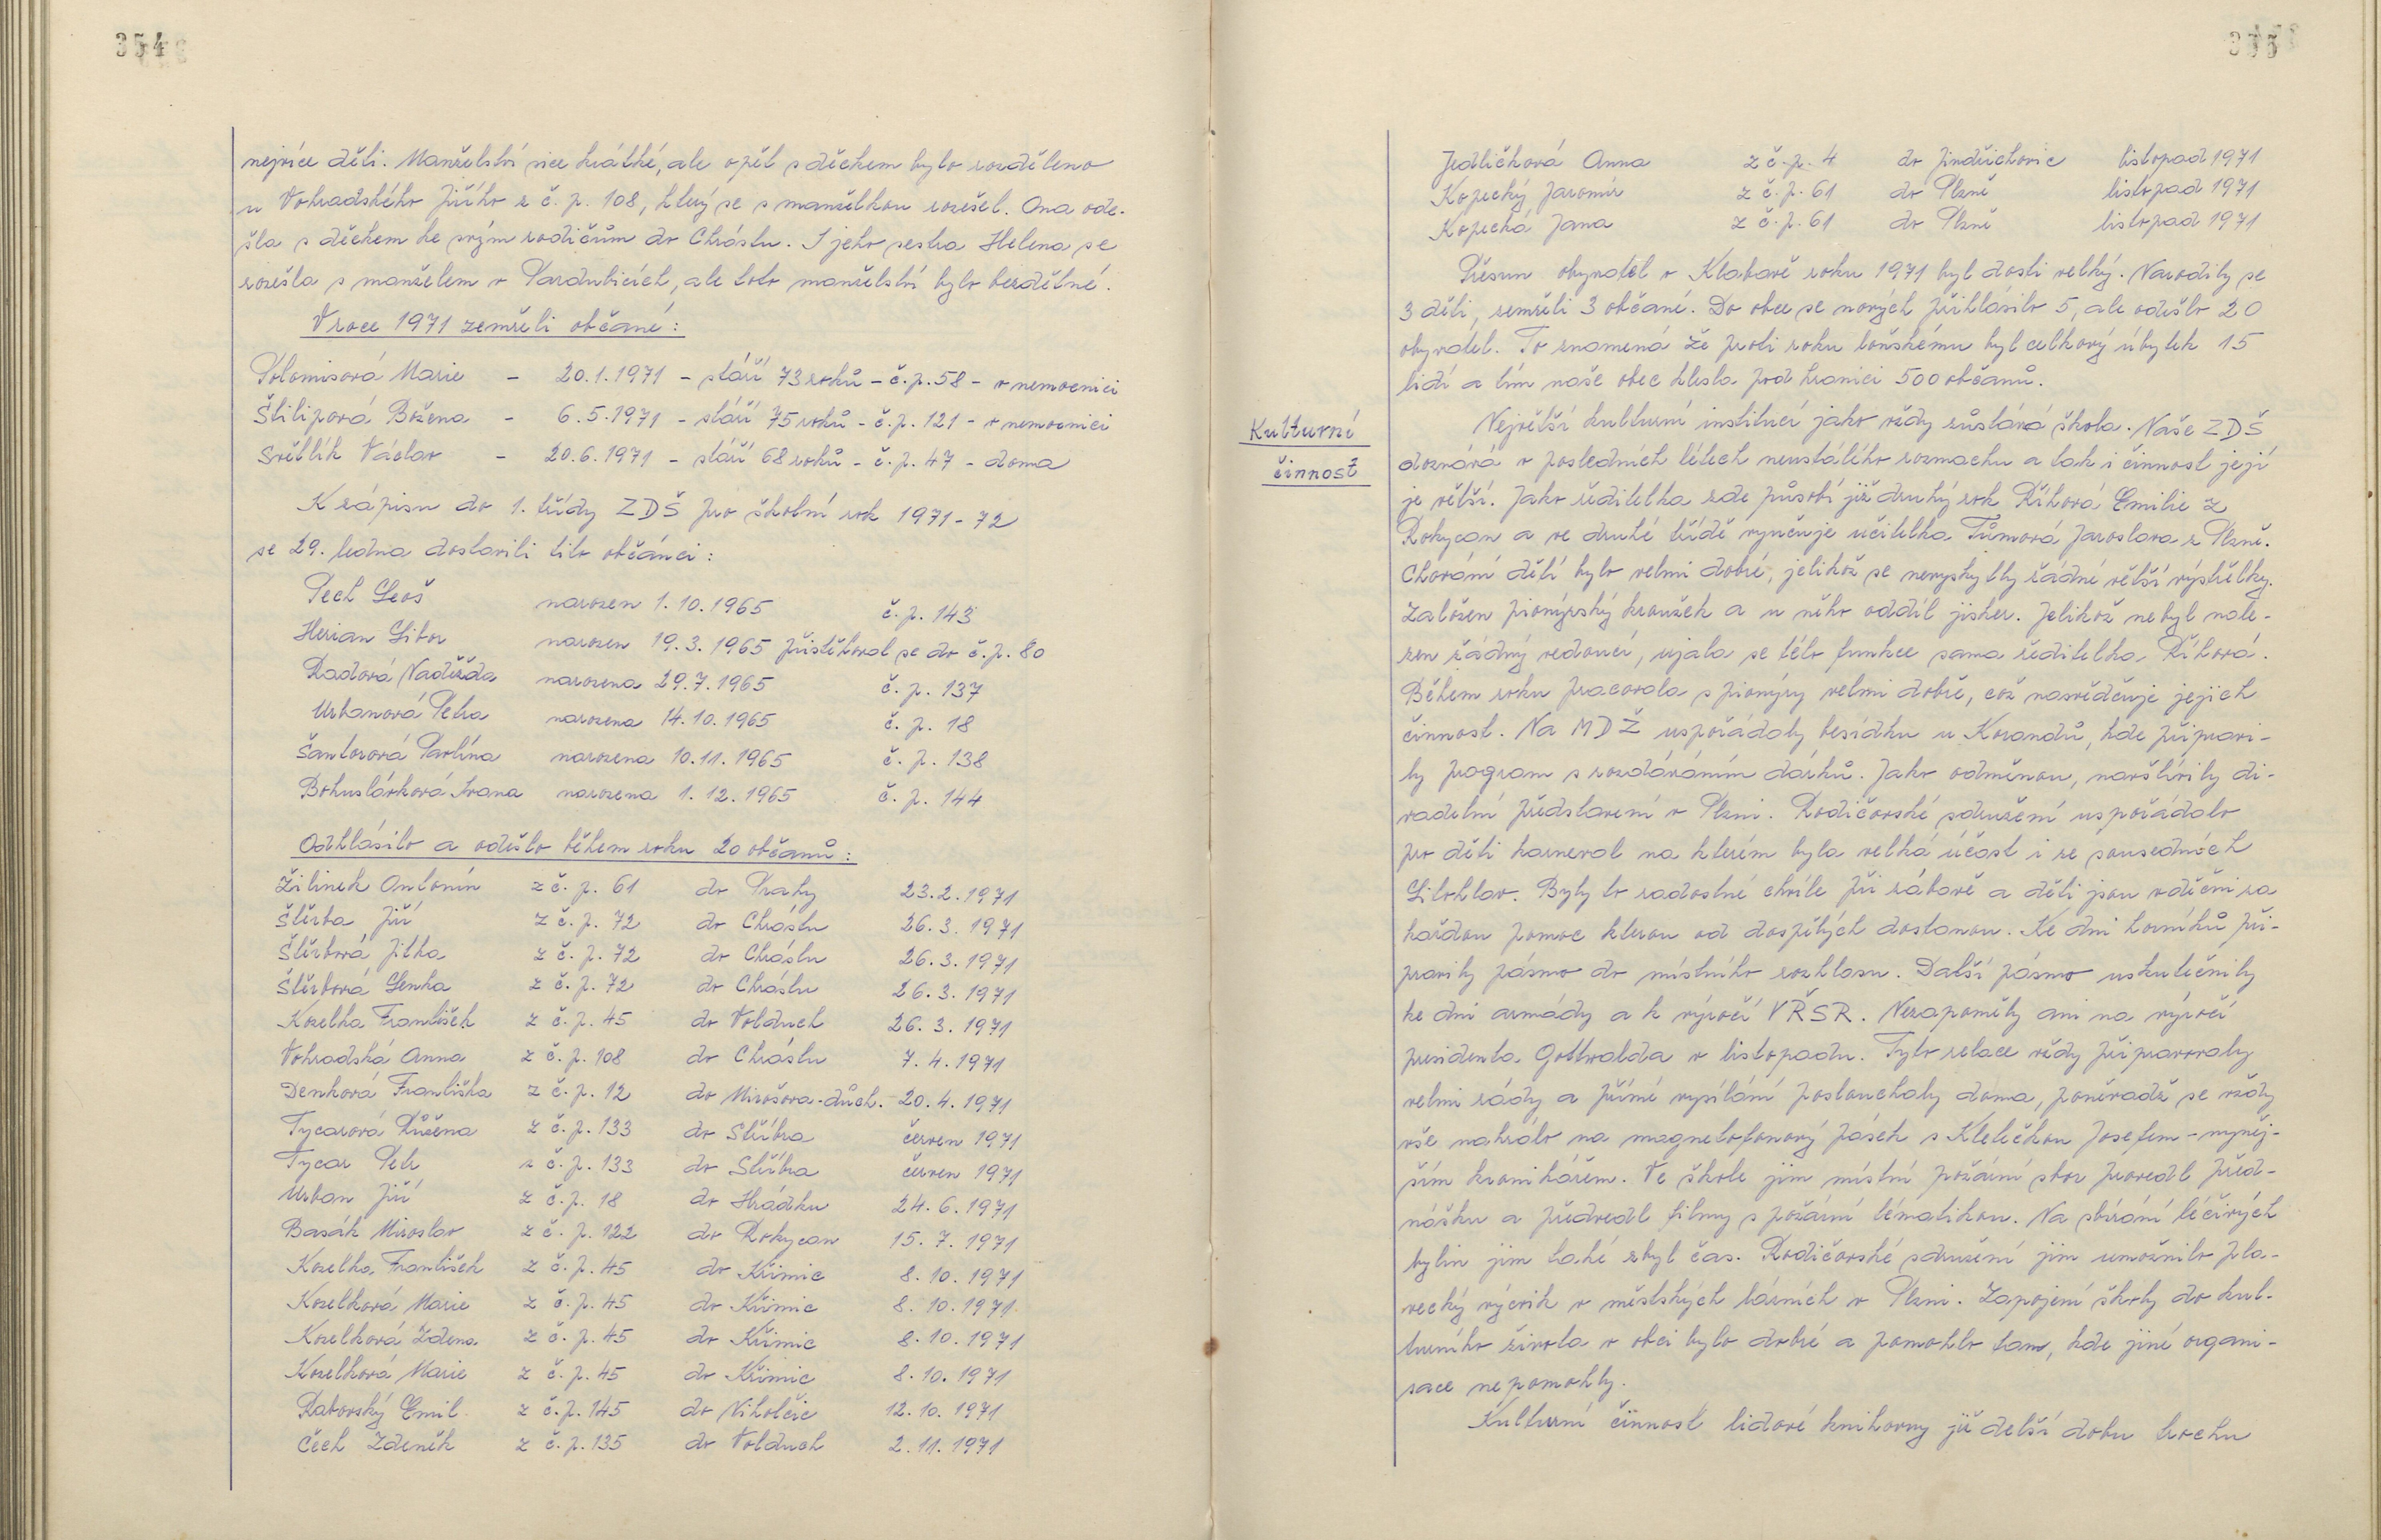 354
nejvíce děti. Manželství sice krátké, ale opět s děckem bylo rozděleno
u Vohradského Jiřího z č. p. 108, který se s manželkou rozešel. Ona ode-
šla s děckem ke svým rodičům do Chrástu. I jeho sestra Helena se
rozešla s manželem v Pardubicích, ale toto manželství bylo bezdětné.
V roce 1971 zemřeli občané:
Polomisová Marie - 20.1.1971 - stáří 73 roků - č.p. 58 - v nemocnici
Štiliporá Božena - 6.5.1971 - stáří 75 roků - č.p. 121 - v nemocnici
Světlík Václav - 20.6.1971 - stáří 68 roků - č.p. 47 - doma
K zápisu do 1. třídy ZDŠ pro školní rok 1971-72
se 29. ledna dostavili tito občánci:
Pech Leoš narozen 1.10.1965 č.p. 143
Herian Libor narozen 19.3.1965 přistěhoval se do č.p. 80
Radová Naděžda narozena 29.7.1965 č.p. 137
Urbanová Petra narozena 14.10.1965 č.p. 18
Šantorová Pavlína narozena 10.11.1965 č.p. 138
Bohuslávková Ivana narozena 1.12.1965 č.p. 144
Odhlásilo a odešlo během roku 20 občanů:
Žilinek Antonín z č.p. 61 do Prahy 23.2.1971
Štěrba Jiří z č.p. 72 do Chrástu 26.3.1971
Štěrbová Jitka z č.p. 72 do Chrástu 26.3.1971
Štěrbová Lenka z č.p. 72 do Chrástu 26.3.1971
Kozelka František z č.p. 45 do Volduch 26.3.1971
Vohradská Anna z č.p. 108 do Chrástu 7.4.1971
Denková Františka z č.p. 12 do Mirošova-důch. 20.4.1971
Tycarová Růžena z č.p. 133 do Stříbra červen 1971
Tycar Petr z č.p. 133 do Stříbra červen 1971
Urban Jiří z č.p. 18 do Hrádku 24.6.1971
Basák Miroslav z č.p. 122 do Rokycan 15.7.1971
Kozelka František z č.p. 45 do Křimic 8.10.1971
Kozelková Marie z č.p. 45 do Křimic 8.10.1971
Kozelková Zdena z č.p. 45 do Křimic 8.10.1971
Kozelková Marie z č.p. 45 do Křimic 8.10.1971
Raborský Emil z č.p. 145 do Nihošic 12.10.1971
Čech Zdeněk z č.p. 135 do Volduch 2.11.1971
355
Jedličková Anna z č.p. 4 do Jindřichovic listopad 1971
Kopecký Jaromír z č.p. 61 do Plzně listopad 1971
Kopecká Jana z č.p. 61 do Plzně listopad 1971
Přesun obyvatel v Klabavě roku 1971 byl dosti velký. Narodily se
3 děti, zemřeli 3 občané. Do obce se nových přihlásilo 5, ale odešlo 20
obyvatel. To znamená že proti roku loňskému byl celkový úbytek 15
lidí a tím naše obec klesla pod hranici 500 občanů.
Kulturní
činnost
Největší kulturní institucí jako vždy zůstává škola. Naše ZDŠ
doznává v posledních létech neustálého rozmachu a tak i činnost její
je větší. Jako ředitelka zde působí již druhý rok Říhová Emilie z
Rokycan a ve druhé třídě vyučuje učitelka Tůmová Jaroslava z Plzně.
Chování dětí bylo velmi dobré, jelikož se nevyskytly žádné větší výstřelky.
Založen pionýrský kroužek a u něho oddíl jisker. Jelikož nebyl nale-
zen žádný vedoucí, ujala se této funkce sama ředitelka Říhová.
Během roku pracovala s pionýry velmi dobře, což nasvědčuje jejich
činnost. Na MDŽ uspořádaly besídku u Korandů, kde připravi-
ly program s rozdáváním dárků. Jako odměnou, navštívily di-
vadelní představení v Plzni. Rodičovské sdružení uspořádalo
pro děti karneval na kterém byla velká účast i ze sousedních
Litohlav. Byly to radostné chvíle při zábavě a děti jsou vděčni za
každou pomoc kterou od dospělých dostanou. Ke dni horníků při-
pravily pásmo do místního rozhlasu. Další pásmo uskutečnily
ke dni armády a k výročí VŘSR. Nezapoměly ani na výročí
presidenta Gottwalda v listopadu. Tyto relace vždy připravovaly
velmi rády a přímé vysílání poslouchaly doma, poněvadž se vždy
vše nahrálo na magnetofonový pásek s Kletečkou Josefem - nyněj-
ším kronikářem. Ve škole jim místní požární sbor provedl před-
nášku a předvedl filmy s požární tématikou. Na sbírání léčivých
bylin jim také zbyl čas. Rodičovské sdružení jim umožnilo pla-
vecký výcvik v městských lázních v Plzni. Zapojení školy do kul-
turního života v obci bylo dobré a pomohlo tam, kde jiné organi-
sace nepomohly.
Kulturní činnost lidové knihovny již delší dobu trochu